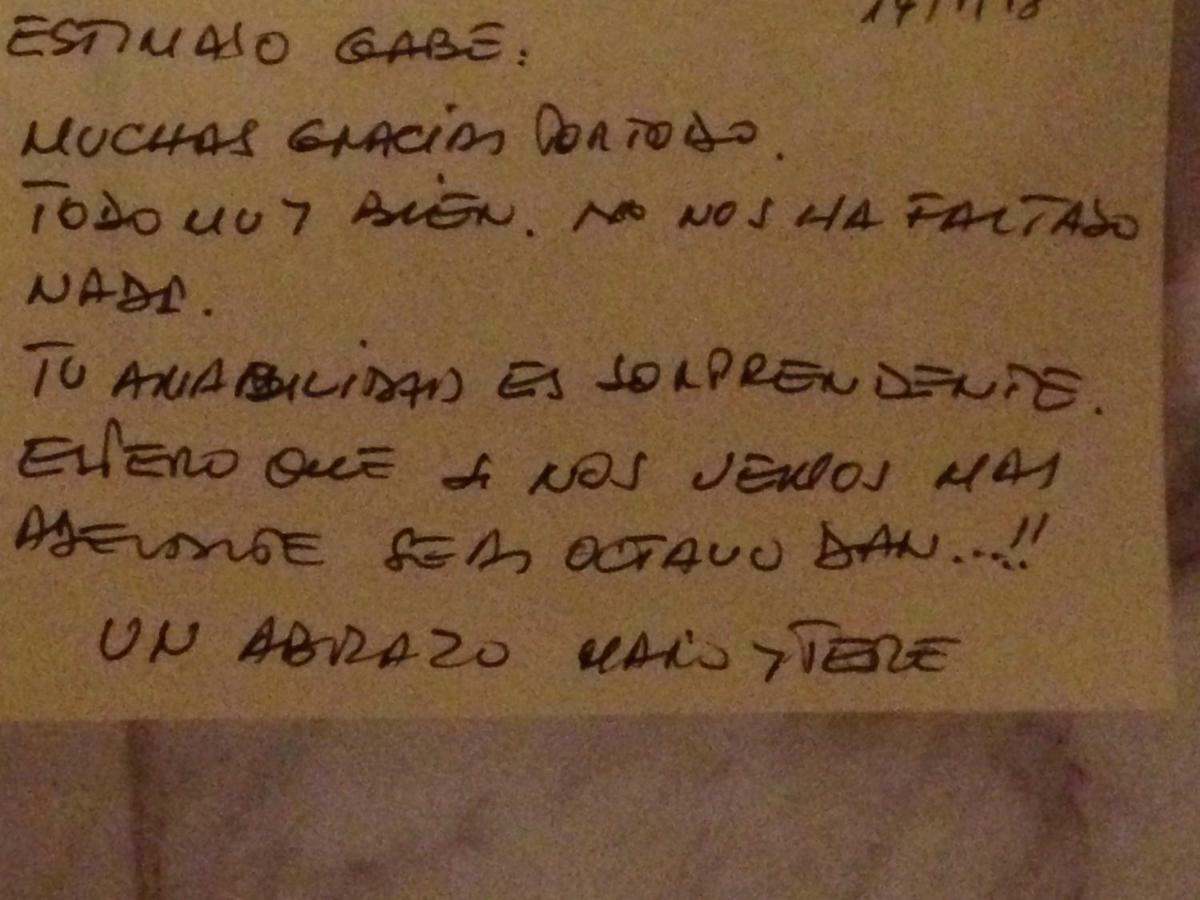 ESTIMADO GABE:
MUCHAS GRACIAS POR TODO.
TODO MUY BIEN. NO NOS HA FALTADO
NADA.
TU AMABILIDAD ES SORPRENDENTE.
ESPERO QUE SI NOS VEMOS MAS
ADELANTE SEAS OCTAVO DAN...!!
UN ABRAZO Y TERE